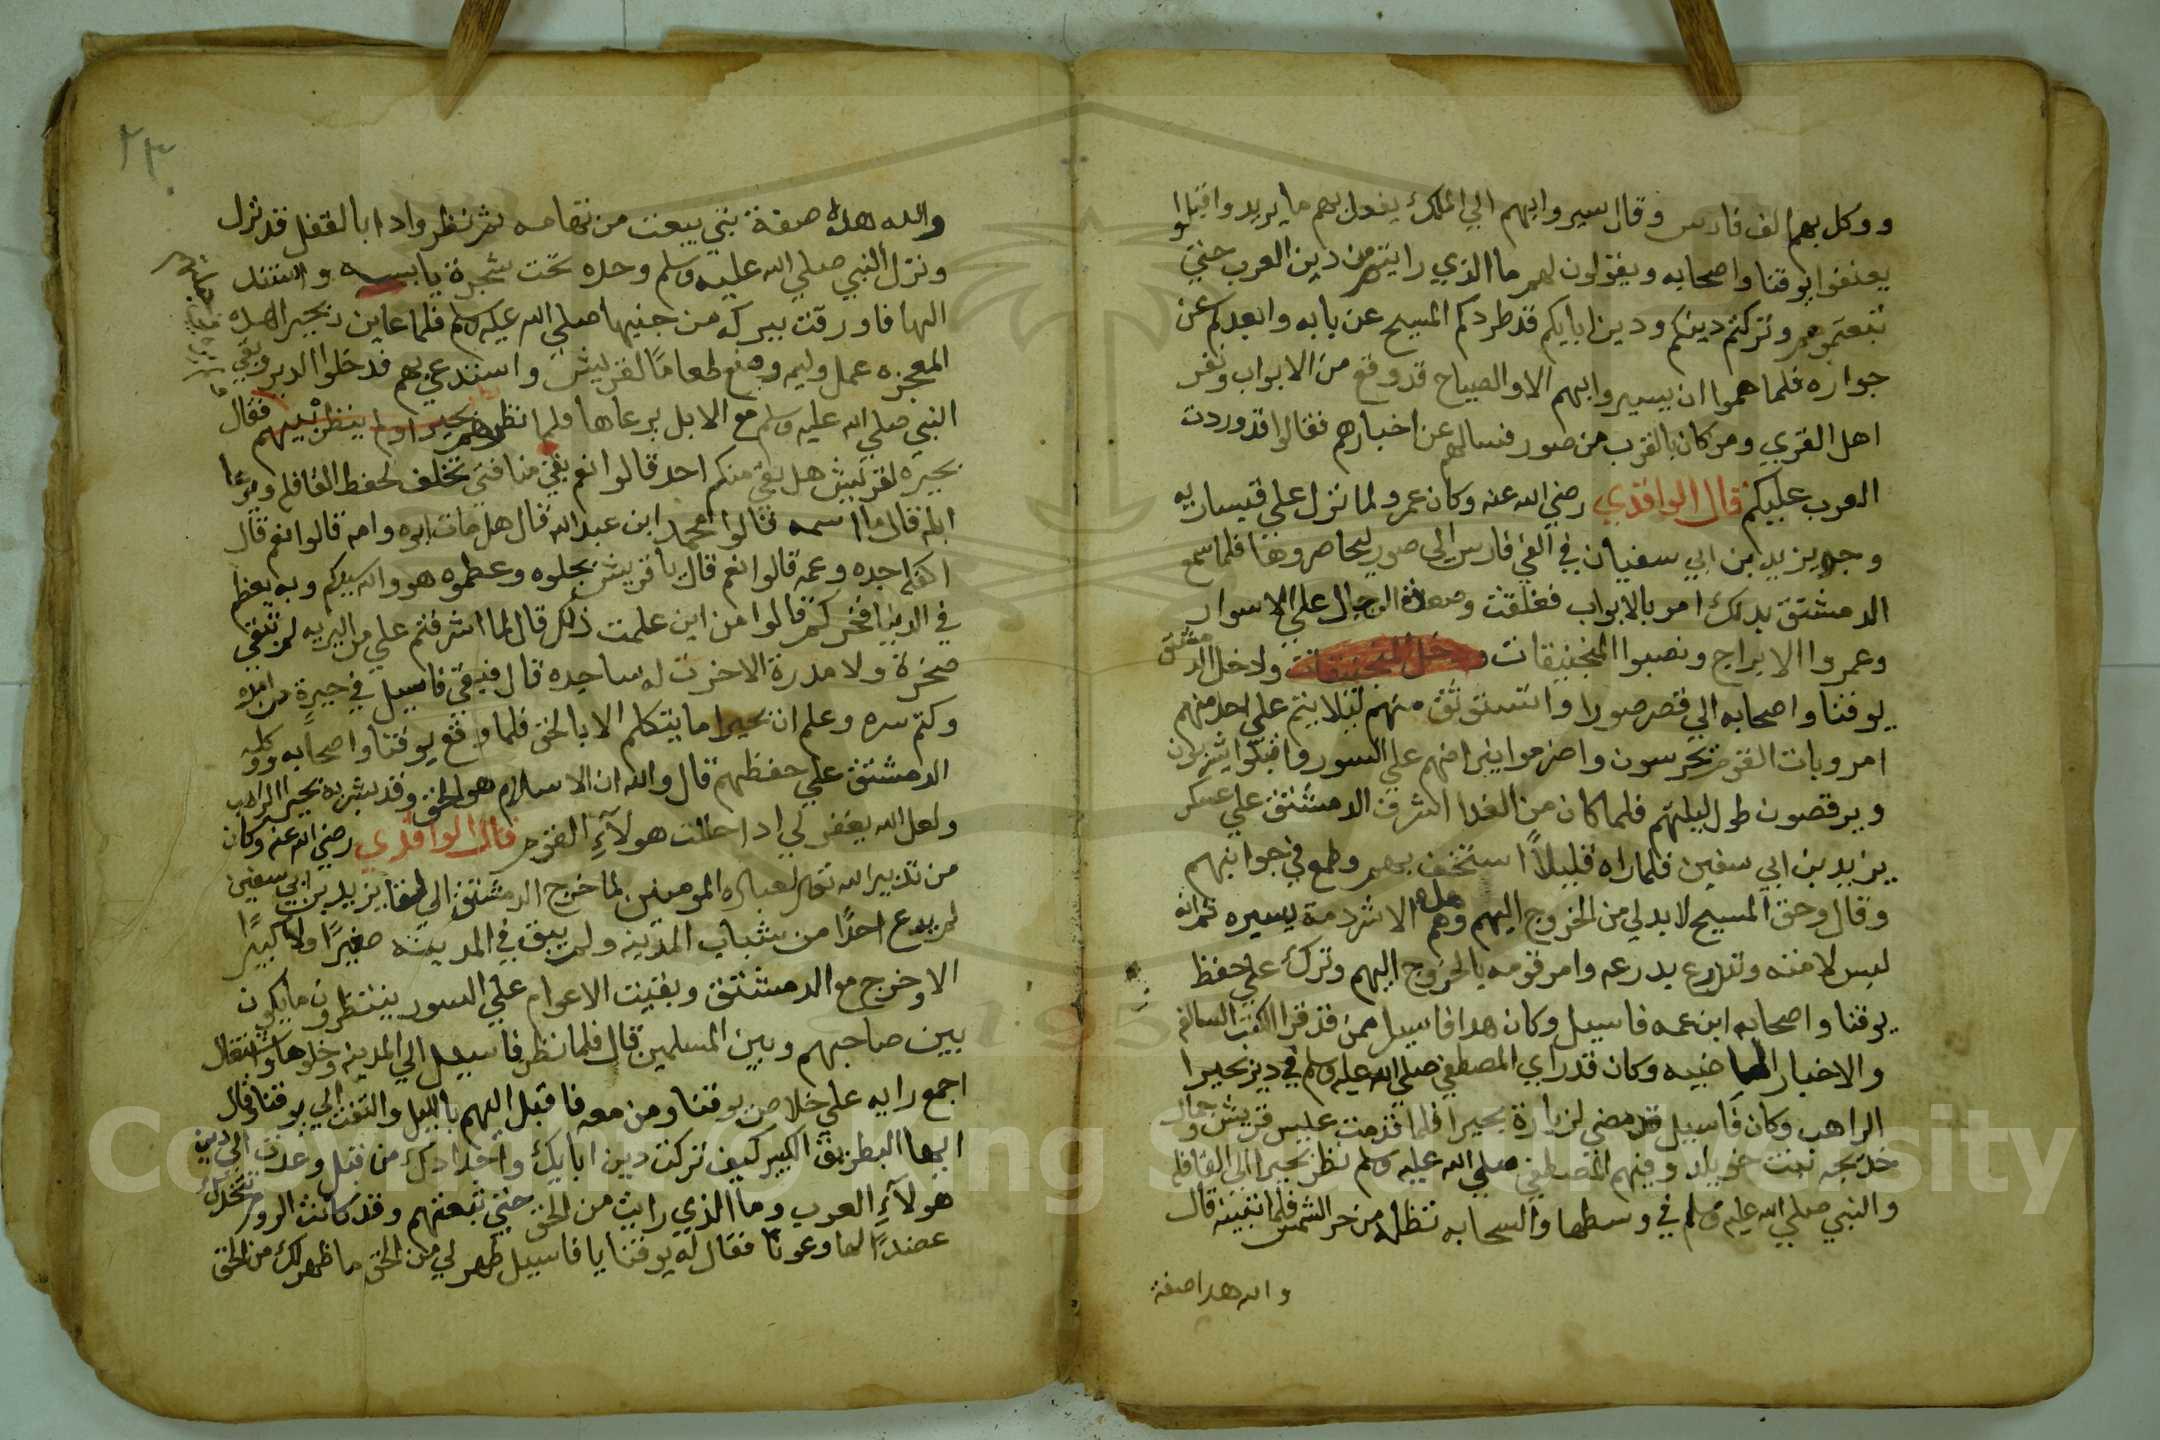 ووكل بهم الف فارس وقال سيروابهم الي الملك يفعل بهم ما يريد واقبلوا
يعنفوا يوقنا واصحابه ويقولون لهم ما الذي رايتم من دين العرب حتي
تبعتموهم وتركتم دينكم ودين ابايكم قد طردكم المسيح عن بابه وابعدكم عن
جواره فلما هموا ان يسيروابهم الا والصياح قد وقع من الابواب ونفر
اهل القري ومن كان بالقرب من صور فسالهم عن اخبارهم فقالوا قد وردت
العرب عليكم قال الواقدي رضي الله عنه وكان عمرو لما نزل علي قيساريه
وجه يزيد ابن ابي سفيان في الفي فارس الي صور ليحاصروها فلما سمع
الدمشتق بدلك امر بالابواب فغلقت وصعدة الرجال علي الاسوار
وعمروا الابراج ونصبوا المنجنيقات ودخل الدمشتق
يوقنا واصحابه الي قصر صورا واستوثق منهم ليلا يتم علي احد منهم
امر وبات القوم يحرسون واضرموا نيرانهم علي السور واقبلوا يشربون
ويرقصون طول ليلتهم فلما كان من الغدا اشرف الدمشتق علي عسكر
يزيد بن ابي سفين فلما راه قليلاً استخف بهم وطمع في جوابنهم
وقال وحق المسيح لا بد لي من الخروج اليهم وهل هم الا شردمة يسيره ثم انه
لبس لامته وتدرع بدرعه وامر قومه بالخروج اليهم وترك علي حفظ
يوقنا واصحابه ابن عمه فاسيل وكان هدا فاسيل ممن قد قرا الكتب السالفه
والاخبار الماضيه وكان قد راي المصطفي صلي الله عليه وسلم في دير بحيرا
الراهب وكان فاسيل قد مضي لزيارة بحيرا فلما قدمت عليس قريش وجمال
خديجه بنت خويلد وفيهم المصطفي صلي الله عليه وسلم نظر بحيرا الي القافله
والنبي صلي الله عليه وسلم في وسطها والسحابه تظله من حر الشمس فلما تبينه قال
والله هدا صفة
والله هده صفة نبي يبعت من تهامه ثم نظر وادا بالقفل قد نزل
ونزل النبي صلي الله عليه وسلم وحده تحت شجرة يابسه واستند
اليها فاورقت ببركة من جنبها صلي الله عليه وسلم فلما عاين بحيرا هده
المعجزه عمل وليمه وصنع طعامًا لقريش واستدعي بهم فدخلوا الدير وبقي
النبي صلي الله عليه وسلم مع الابل يرعاها فلما نظرهم بحيرا ولم ينظر نبيهم فقال
بحيره لقريش هل بقي منكم احد قالوا نعم بقي منا فتي تخلف لحفظ القافله ويرعا
ابله قال ما اسمه قالوا محمد ابن عبد الله قال هل مات ابوه وامه قالوا نعم قال
اكفله جده وعمه قالوا نعم قال يا قريش بجلوه وعظموه هو والله سيدكم وبه يعظم
في الدنيا فخركم قالوا من اين علمت ذلك قال لما اشرفتم علي من البريه لم تبقي
صخرة ولا مدرة الا خرت له ساجده قال فبقي فاسيل في حيرةٍ من امره
وكتم سره وعلم ان بحيرا ما يتكلم الا بالحق فلما وقع يوقنا واصحابه ووكله
الدمشتق علي حفظهم قال والله ان الاسلام هو الحق وقد بشر به بحيرا الراهب
ولعل الله يغفر لي ادا خلصت هولآءِ القوم قال الواقدي رضي الله عنه وكان
من تدبير الله تعالى لعباده المومنين لما خرج الدمشتق الي لقا يزيد بن ابي سفين
لم يدع احدًا من شباب المدينه ولم يبق في المدينه صغيرًا ولا كبيرًا
الا وخرج مع الدمشتق وبقيت الاعوام علي السور ينتظرون ما يكون
بين صاحبهم وبين المسلمين قال فلما نظر فاسيل الي المدينه وخلوها
اجمع رايه علي خلاص يوقنا ومن معه فاقبل اليهم بالليل والتفت الي يوقنا وقال
ايها البطريق الكبير كيف تركت دين ابايك واجدادك من قبل وعدت الي دين
هولآءِ العرب وما الذي رايت من الحق حتي تبعتهم وقد كانت الروم تتخدك
عضدًا لها وعونًا فقال له يوقنا يا فاسيل ظهر لي من الحق ما ظهر لك من الحق